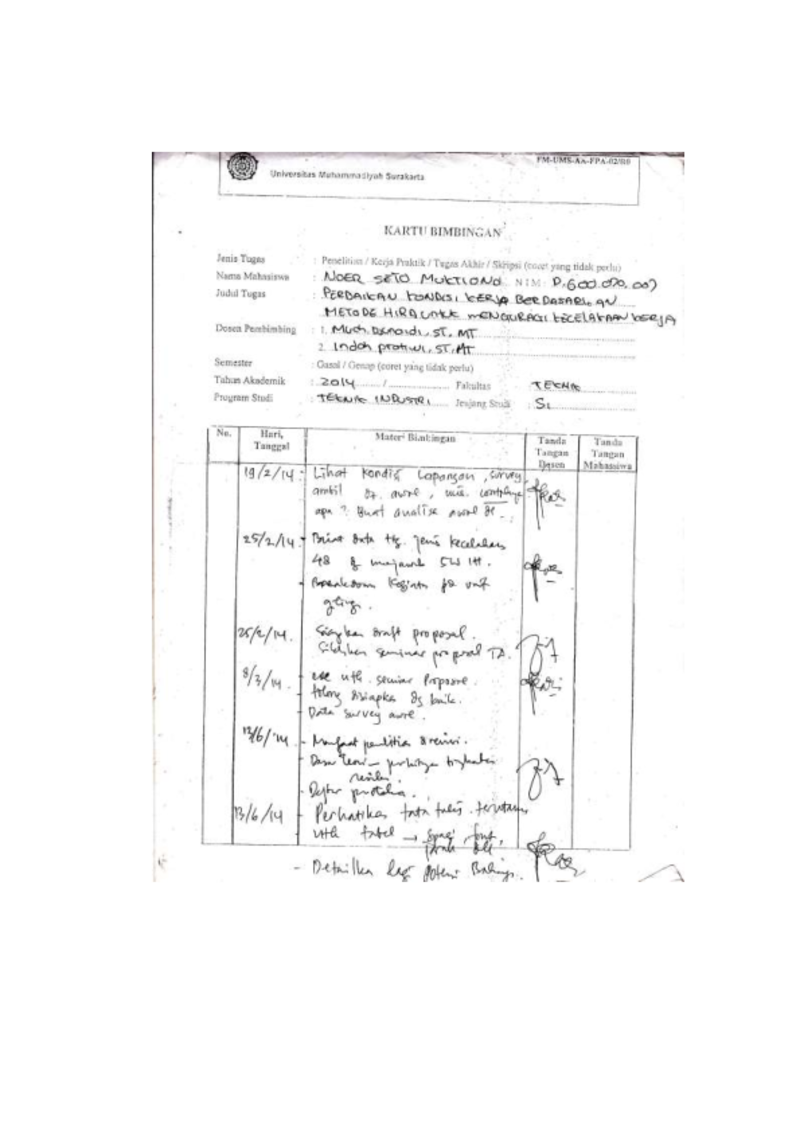 FM-UMS-AA-FPA-02/R0
Universitas Muhammadiyah Surakarta
KARTU BIMBINGAN
Jenis Tugas : Penelitian / Kerja Praktik / Tugas Akhir / Skripsi (coret yang tidak perlu)
Nama Mahasiswa : NOER SETO MUKTIONO NIM: D.600.070.007
Judul Tugas : PERBAIKAN KONDISI KERJA BERDASARKAN
METODE HIRA UNTUK MENGURAGI KECELAKAAN KERJA
Dosen Pembimbing : 1. Much. Djunaidi, ST, MT
2. Indah pratiwi, ST, MT
Semester : Gasal / Genap (coret yang tidak perlu)
Tahun Akademik : 2014 / Fakultas TEKNIK
Program Studi : TEKNIK INDUSTRI Jenjang Studi : S1
No. Hari, Tanggal Materi Bimbingan Tanda Tangan Dosen Tanda Tangan Mahasiswa
19/2/14 - Lihat kondisi Lapangan, survey
ambil awal,
apa ? Buat analisa awal
25/2/14 - data ttg. jenis kecelakaan
48 5W 1H.
- Breakdown kegiatan
25/2/14. Siapkan draft proposal.
Silahkan seminar proposal TA.
8/3/14. - acc utk. seminar Proposal.
- tolong disiapkan dg baik.
- Data survey awal.
12/6/'14 - Manfaat penelitian direvisi.
- Dasar Teori
- Daftar pustaka.
13/6/14 - Perhatikan tata tulis terutama
- utk tabel → spasi, font,
- Detailkan lagi potensi Bahaya.